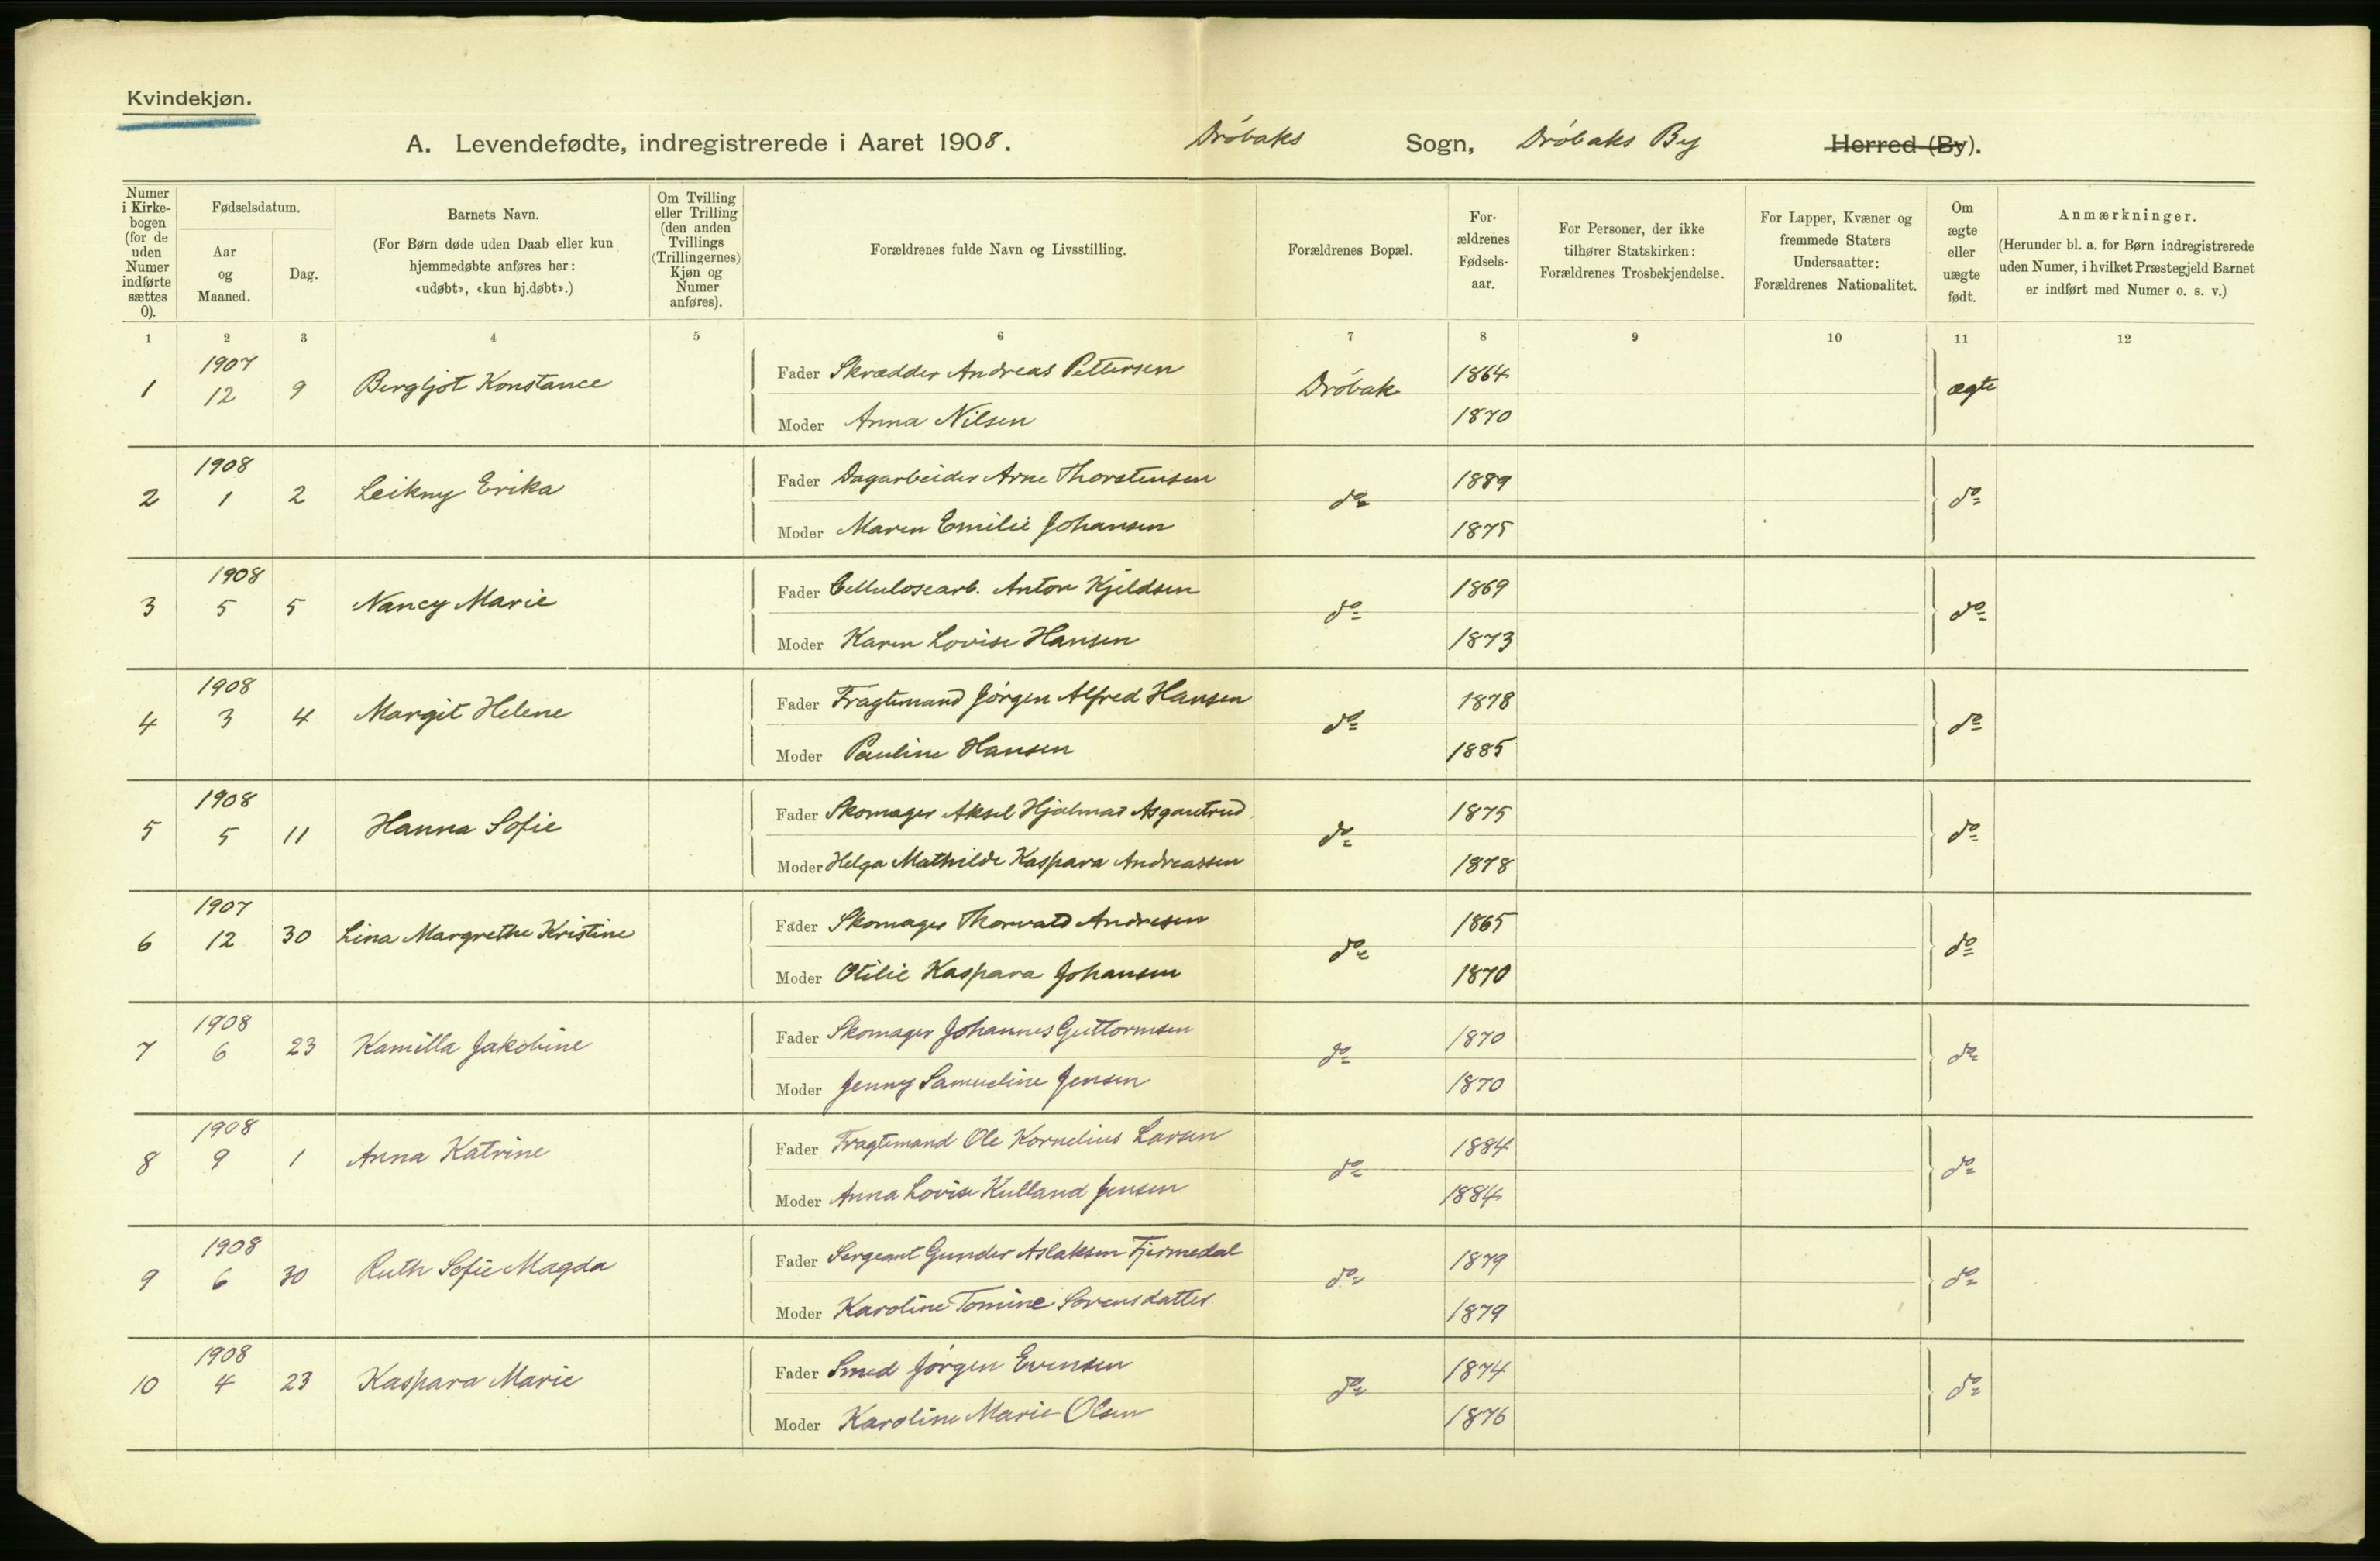 Kvindekjøn.
A. Levendefødte, indregistrerede i Aaret 1908. Drøbaks Sogn, Drøbaks By Herred (By).
Numer i Kirkebogen (for de uden Numer indførte sættes 0).
Fødselsdatum.
Aar og Maaned.
Dag.
Barnets Navn.
(For Børn døde uden Daab eller kun hjemmedøbte anføres her: «udøbt», «kun hj.døbt».)
Om Tvilling eller Trilling (den anden Tvillings (Trillingernes) Kjøn og Numer anføres).
Forældrenes fulde Navn og Livsstilling.
Forældrenes Bopæl.
Forældrenes Fødselsaar.
For Personer, der ikke tilhører Statskirken: Forældrenes Trosbekjendelse.
For Lapper, Kvæner og fremmede Staters Undersaatter: Forældrenes Nationalitet.
Om ægte eller uægte født.
Anmærkninger.
(Herunder bl. a. for Børn indregistrerede uden Numer, i hvilket Præstegjeld Barnet er indført med Numer o. s. v.)
1 2 3 4 5 6 7 8 9 10 11 12
1 1907 12 9 Bergljot Konstance Fader Skrædder Andreas Pettersen Drøbak 1864 ægte
Moder Anna Nilsen 1870
2 1908 1 2 Leikny Erika Fader Dagarbeider Arne Thorstensen do 1889 do
Moder Maren Emilie Johansen 1875
3 1908 5 5 Nancy Marie Fader Cellulosearb. Anton Kjeldsen do 1869 do
Moder Karen Lovise Hansen 1873
4 1908 3 4 Margit Helene Fader Fragtemand Jørgen Alfred Hansen do 1878 do
Moder Pauline Hansen 1885
5 1908 5 11 Hanna Sofie Fader Skomager Aksel Hjalmar Asgautrud do 1875 do
Moder Helga Mathilde Kaspara Andreassen 1878
6 1907 12 30 Lina Margrethe Kristine Fader Skomager Thorvald Andresen do 1865 do
Moder Otilie Kaspara Johansen 1870
7 1908 6 23 Kamilla Jakobine Fader Skomager Johannes Guttormsen do 1870 do
Moder Jenny Samueline Jensen 1870
8 1908 9 1 Anna Katrine Fader Fragtemand Ole Kornelius Larsen do 1884 do
Moder Anna Lovise Kulland Jensen 1884
9 1908 6 30 Ruth Sofie Magda Fader Sergeant Gunder Aslaksen Fjermedal do 1879 do
Moder Karoline Tomine Sorensdatter 1879
10 1908 4 23 Kaspara Marie Fader Smed Jørgen Evensen do 1874 do
Moder Karoline Marie Olsen 1876